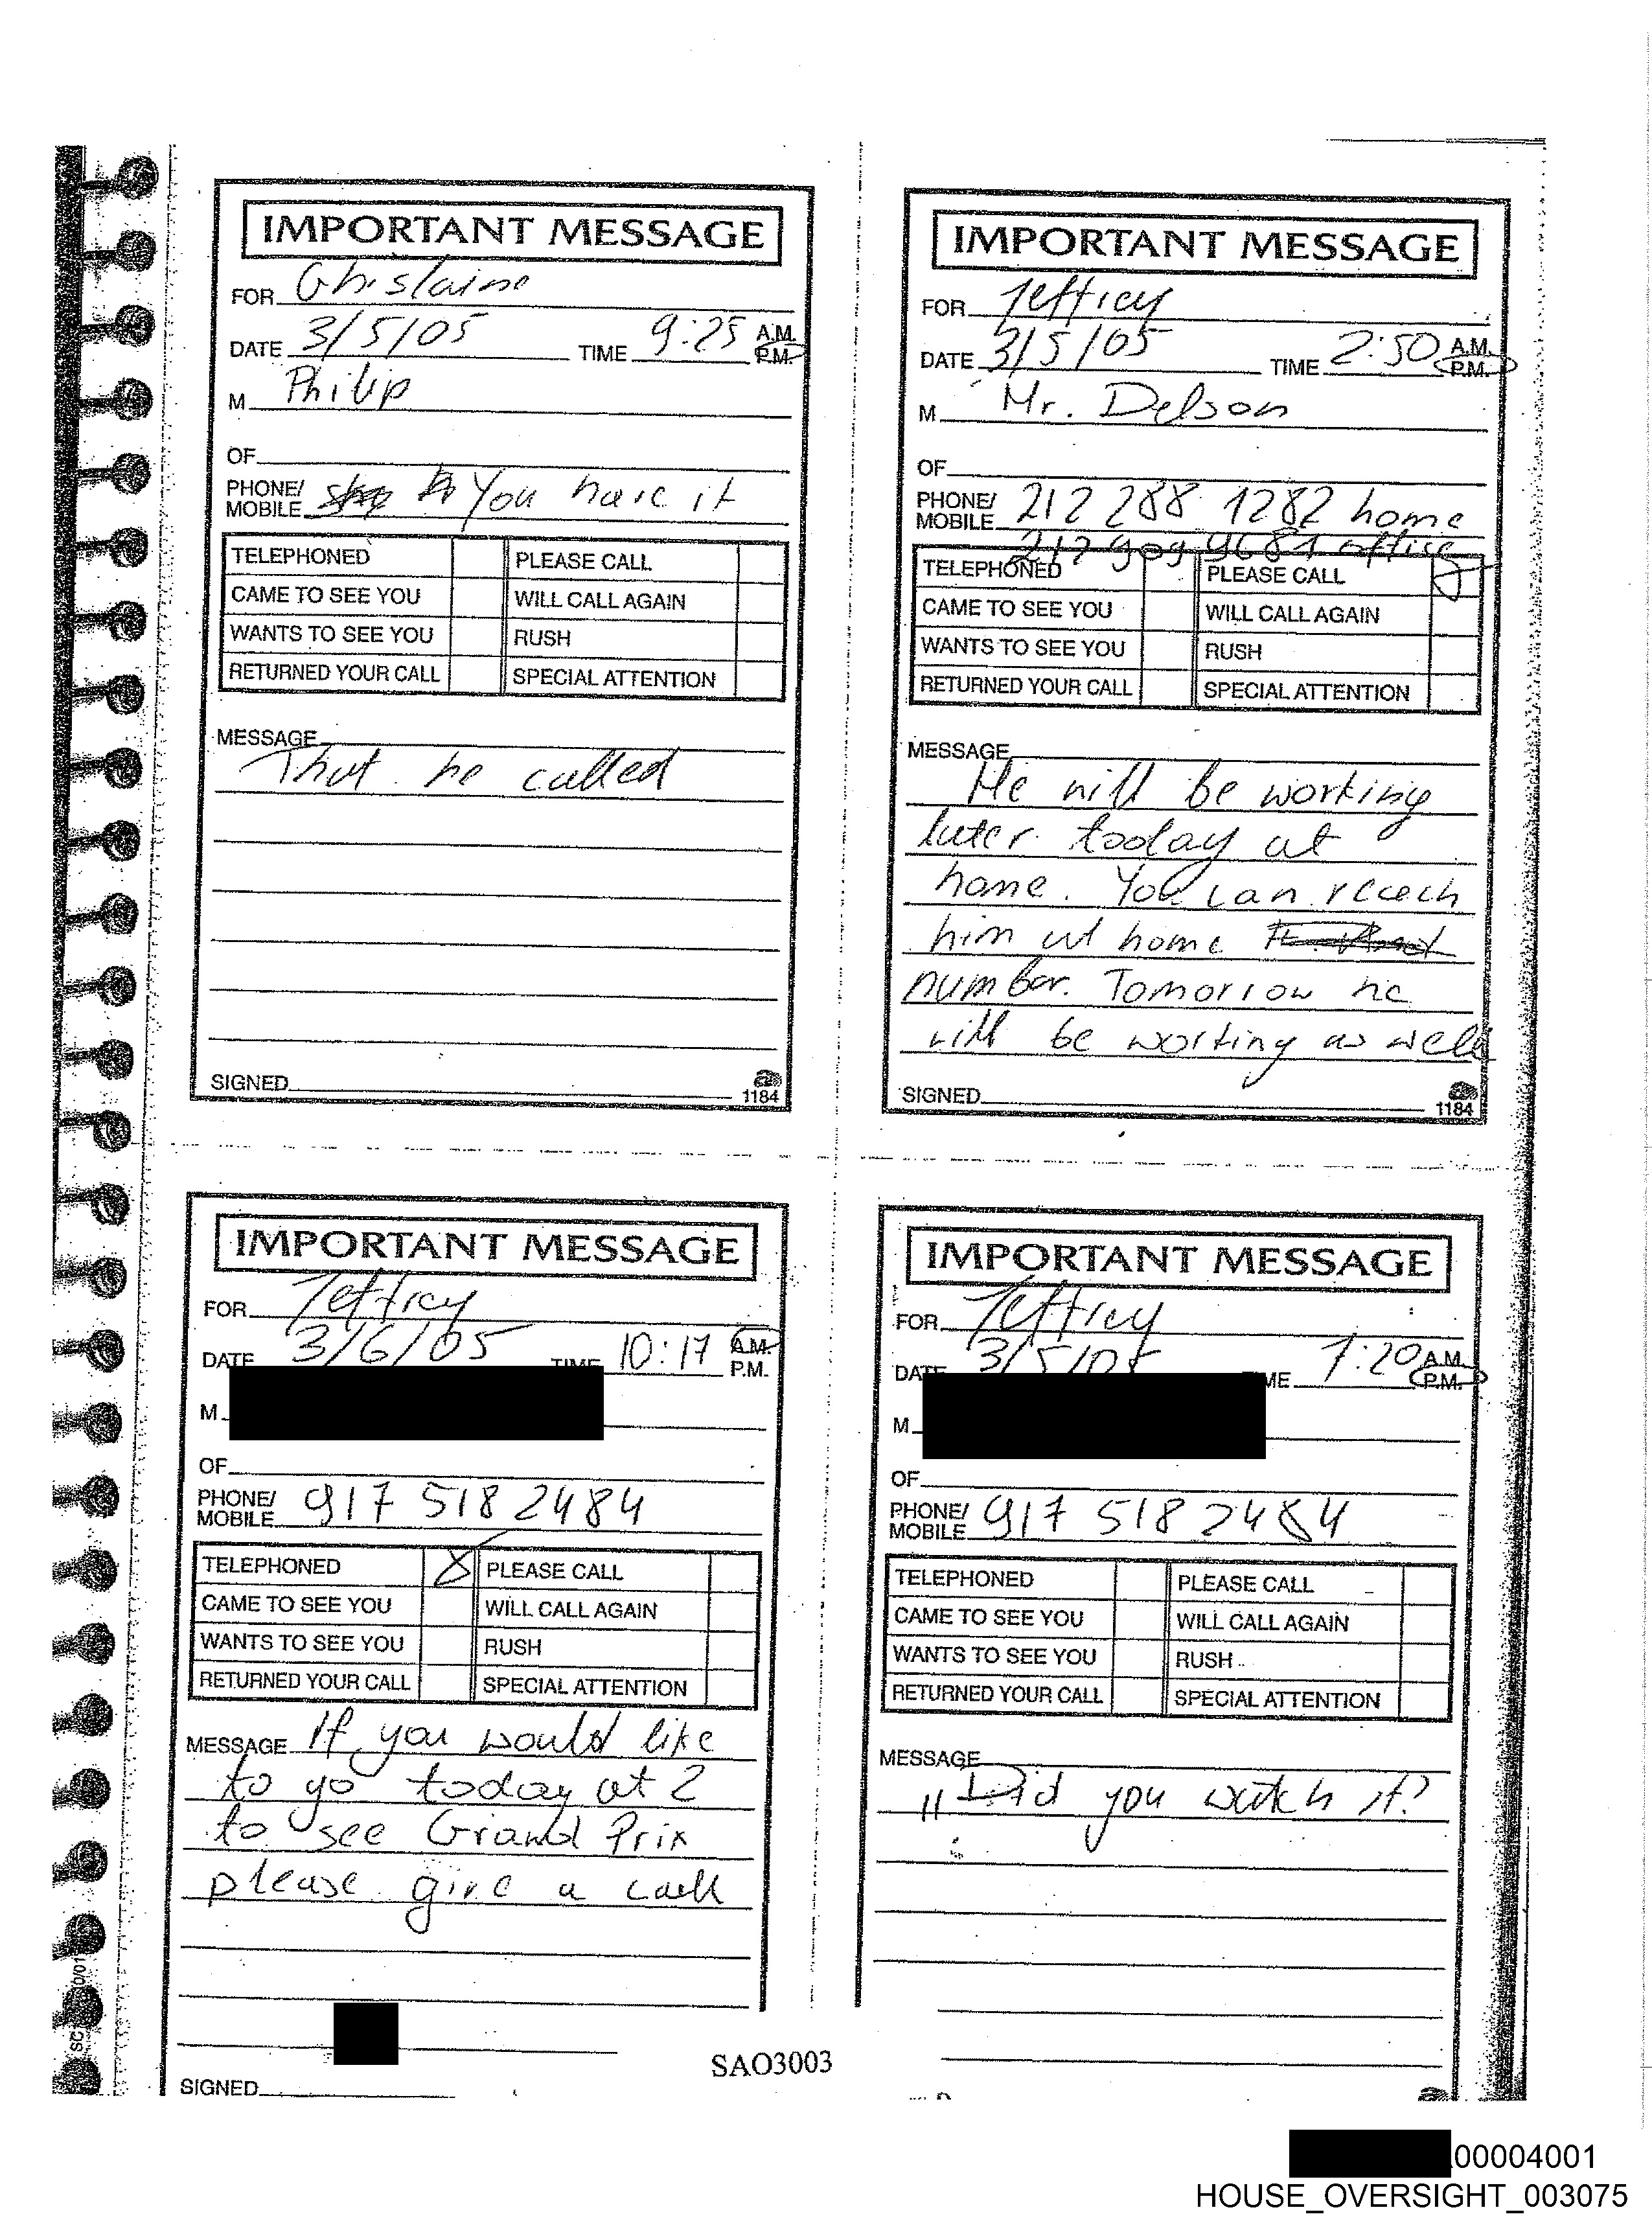 IMPORTANT MESSAGE
FOR Ghislaine
DATE 3/5/05 TIME 9:25 A.M. P.M.
M Philip
OF
PHONE/ MOBILE You have it
TELEPHONED PLEASE CALL
CAME TO SEE YOU WILL CALL AGAIN
WANTS TO SEE YOU RUSH
RETURNED YOUR CALL SPECIAL ATTENTION
MESSAGE
That he called
SIGNED
1184
IMPORTANT MESSAGE
FOR Jeffrey
DATE 3/5/05 TIME 2:50 A.M. P.M.
M Mr. Delson
OF
PHONE/ MOBILE 212 288 1282 home
212 909 9681 office
TELEPHONED PLEASE CALL
CAME TO SEE YOU WILL CALL AGAIN
WANTS TO SEE YOU RUSH
RETURNED YOUR CALL SPECIAL ATTENTION
MESSAGE
He will be working
later today at
home. You can reech
him at home
number. Tomorrow he
will be working as well
SIGNED
1184
IMPORTANT MESSAGE
FOR Jeffrey
DATE 3/6/05 TIME 10:17 A.M. P.M.
M
OF
PHONE/ MOBILE 917 518 2484
TELEPHONED X PLEASE CALL
CAME TO SEE YOU WILL CALL AGAIN
WANTS TO SEE YOU RUSH
RETURNED YOUR CALL SPECIAL ATTENTION
MESSAGE If you would like
to go today at 2
to see Grand Prix
please give a call
SIGNED
IMPORTANT MESSAGE
FOR Jeffrey
DATE 3/5/05 TIME 1:20 A.M. P.M.
M
OF
PHONE/ MOBILE 917 518 2484
TELEPHONED PLEASE CALL
CAME TO SEE YOU WILL CALL AGAIN
WANTS TO SEE YOU RUSH
RETURNED YOUR CALL SPECIAL ATTENTION
MESSAGE
"Did you watch it?
SAO3003
00004001
HOUSE_OVERSIGHT_003075